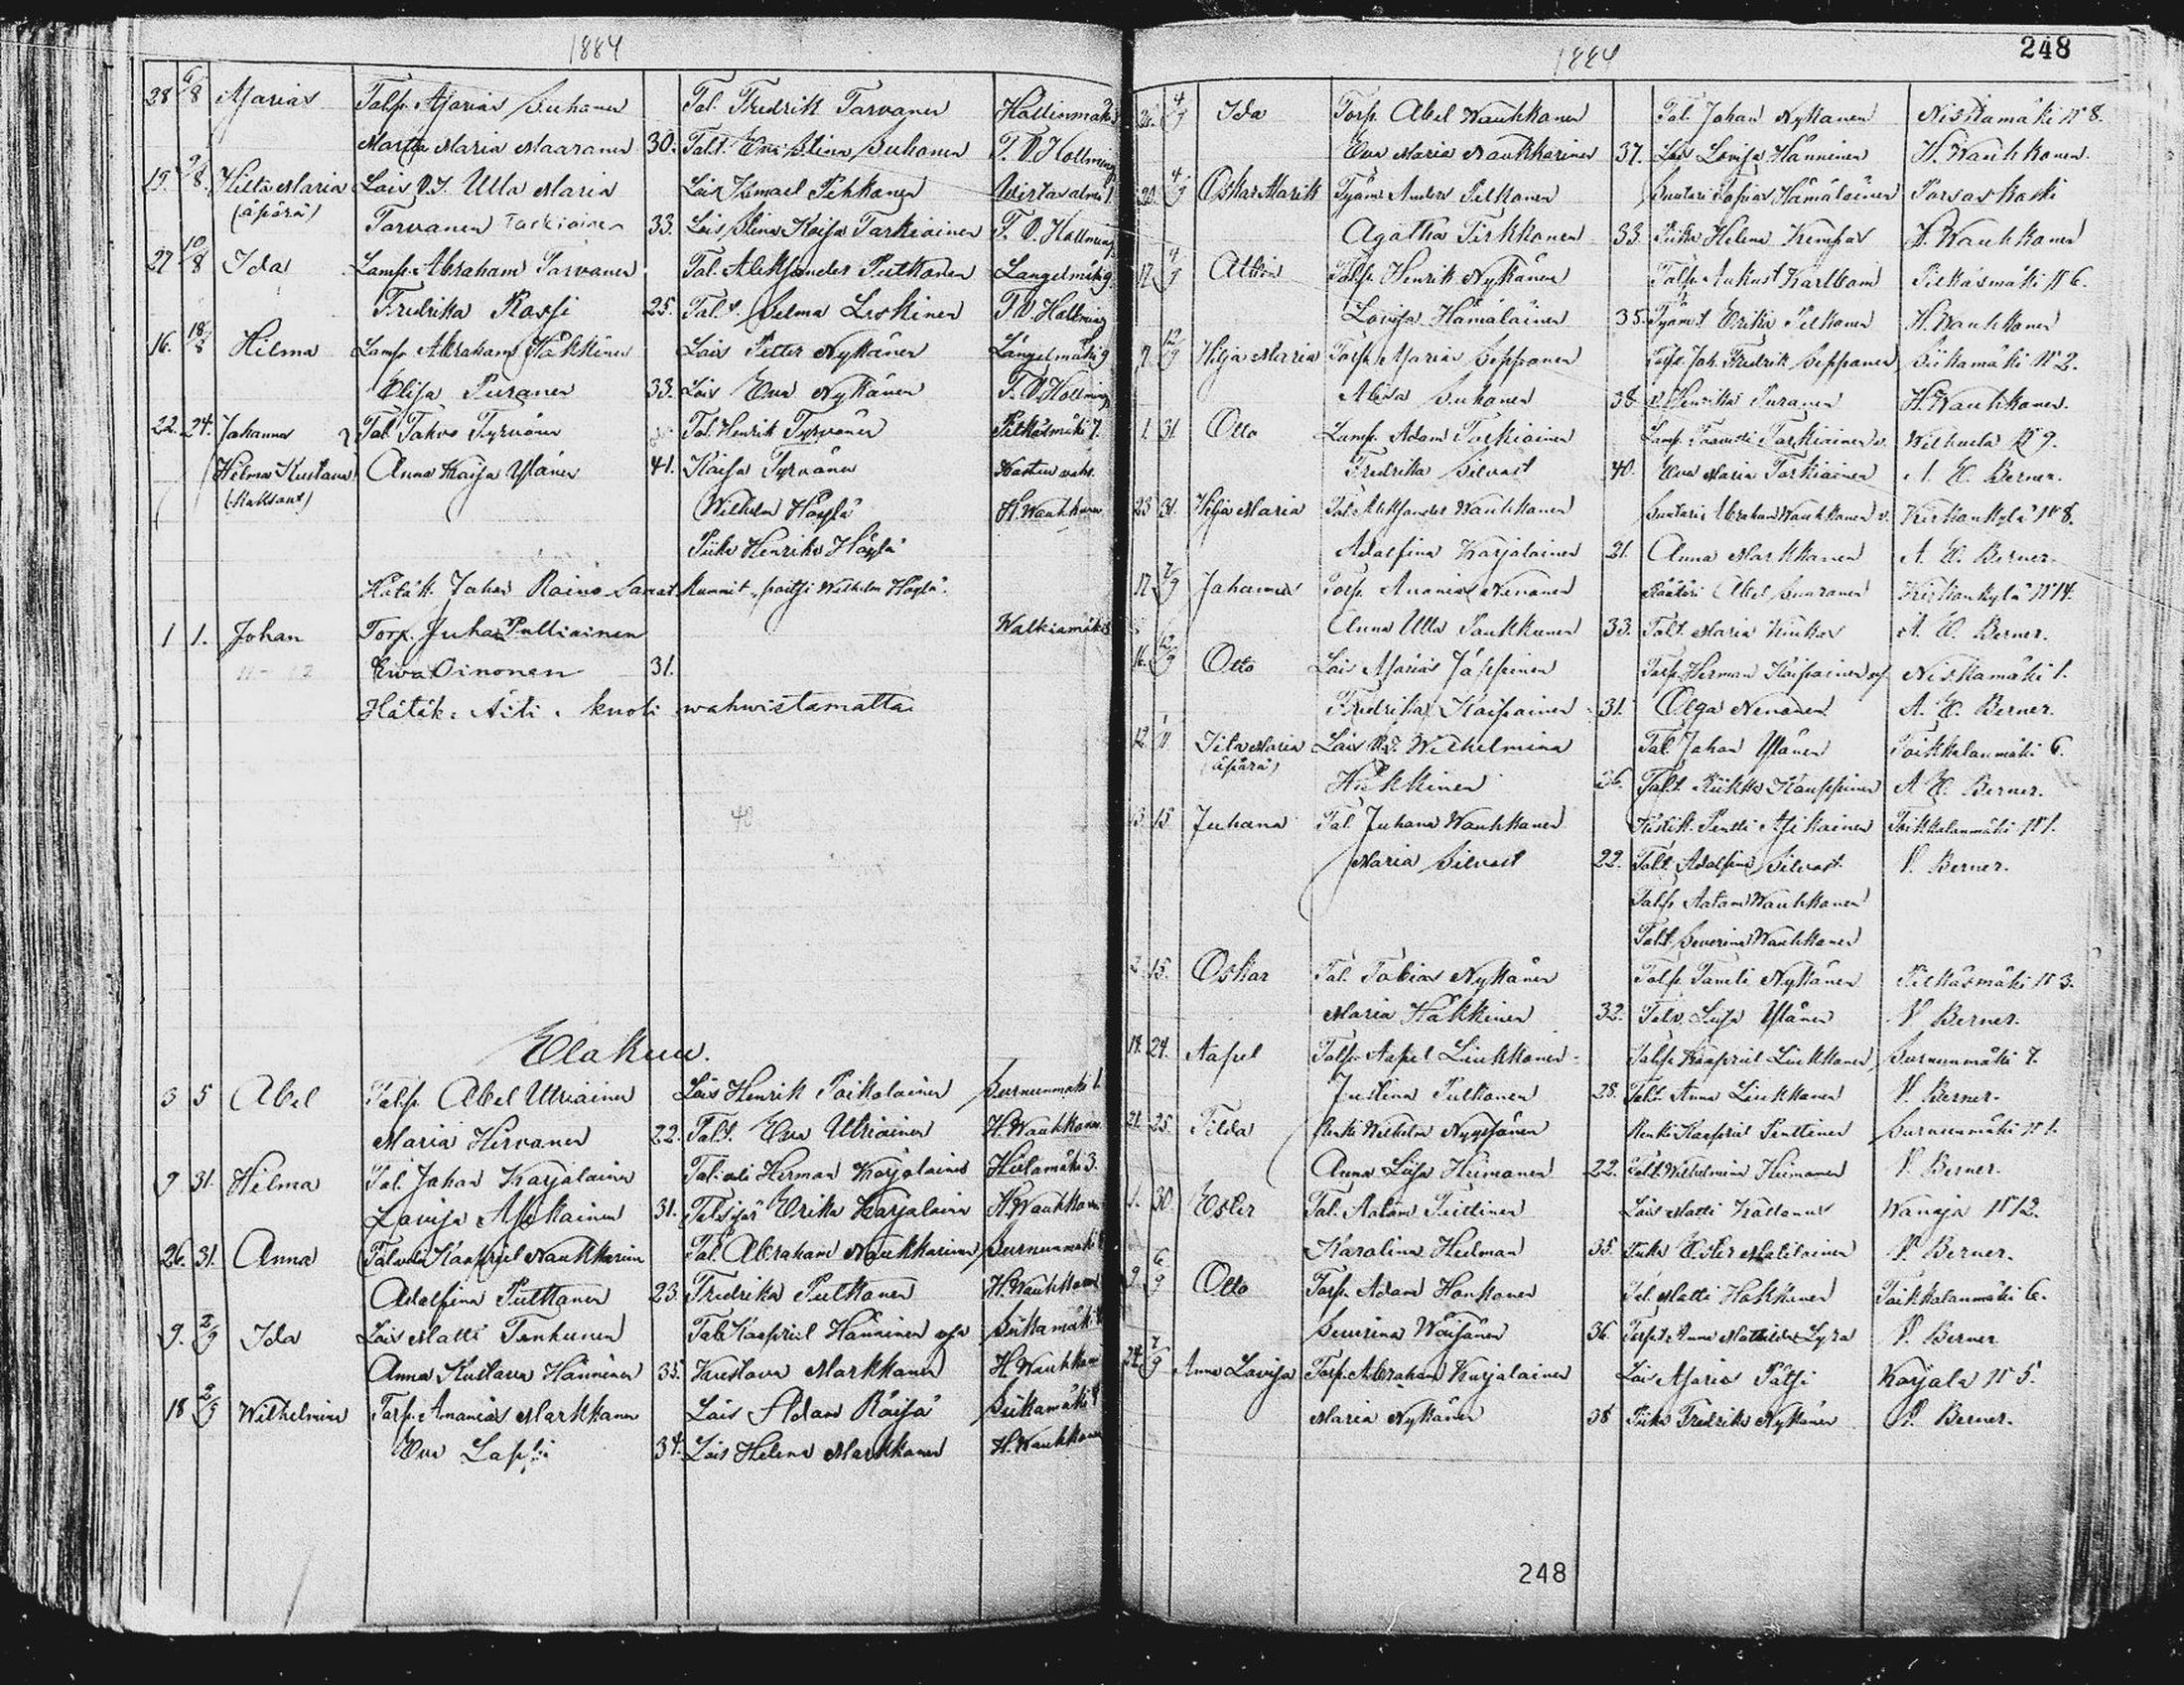 1884
28 6/8 Asarias Talp. Asarias Suhonen Tal. Fredrik Tarvanen Hallinmäki
Marta Maria Maaranen 30. Tal.t. Eva Stina Suhonen T. V. Hollming
19. 9/8. Hilta Maria Lois V.T. Ulla Maria Lois Ismael Pihkanen
(äpärä) Tarvanen Tarkiainen 33. Lois Stina Kaisa Tarkiainen T. V. Hollming
27 10/8 Ida Lamp. Abraham Tarvanen Tal. Aleksander Putkonen Längelmäki 9
Fredrika Rossi 25. Tal.t. Selma Leskinen T. V. Hollming
16. 18/8 Hilma Lamp. Abraham Häkkinen Lois Petter Nykänen Längelmäki 9
Elisa Puranen 33. Lois Eva Nykänen T. V. Hollming
22. 24. Johanna Tal. Tahvo Tyrväinen Tal. Henrik Tyrväinen Pitkälmäki 7.
Hilma Kustava Anna Kaisa Ylänen 41. Kaisa Tyrväinen
(Kaksoset) Wilhelm Höylä H. Wauhkonen
Piika Henrika Höylä
Hätäk. Johan Raino Samat kummit, paitsi Wilhelm Höylä.
1 1. Johan Torp. Juha Pulliainen Walkiamäki
Ewa Oinonen 31.
Hätäk. Äiti. kuoli wahwistamatta
Elokuu.
3 5 Abel Talp. Abel Utriainen Lois Henrik Poikolainen Surnunmäki 1.
Maria Hirvonen 22. Tal.t. Eva Utriainen H. Wauhkonen
9 31. Hilma Tal. Johan Karjalainen Tal. veli Herman Karjalainen Hietamäki 3.
Lovisa Asikainen 31. Tal. sisar Erika Karjalainen H. Wauhkonen
26. 31. Anna Tal. veli Kaapriel Naukkarinen Tal. Abraham Naukkarinen Surnunmäki
Adolfina Putkonen 23. Fredrika Putkonen H. Wauhkonen
9. 2/9 Ida Lois Matti Tenhunen Tal. Kaapriel Hänninen Siikamäki
Anna Kustava Hänninen 35. Kustava Markkanen H. Wauhkonen
18 2/9 Wilhelmina Torp. Ananias Markkanen Lois Adam Räisä Siikamäki
Eva Lappi 34. Lois Helena Markkanen H. Wauhkonen
1884 248
4/9 Ida Torp. Abel Wauhkonen Tal. Johan Nykänen Niskamäki N 8.
Eva Maria Naukkarinen 37. Lois Lovisa Hänninen H. Wauhkonen.
20. 4/9 Oskar Marik Työm. Anders Pelkonen Suutari Tobias Hämäläinen Porsaskoski
Agatha Pirkkonen 33. Piika Helena Kemppas H. Wauhkonen
17. 9/9 Albin Talp. Henrik Nykänen Talp. Aukust Karlbom Pitkäsmäki N 6.
Lovisa Hämäläinen 35. Työm.t. Erika Pelkonen H. Wauhkonen
7 12/9 Hilja Maria Torp. Asarias Seppänen Torp. Joh. Fredrik Seppänen Siikamäki N 2.
Alina Suhonen 38 Henrika Puranen H. Wauhkonen.
1. 31 Otto Lamp. Adam Tarkiainen Lamp. Taavetti Tarkiainen v. Wilhula N 9.
Fredrika Silvast 40. Eva Maria Tarkiainen A. E. Berner.
23 31. Hilja Maria Tal. Aleksander Wauhkonen Suutari Abraham Wauhkonen v. Kirkonkylä N 8.
Adolfina Karjalainen 21. Anna Markkanen A. E. Berner.
17. 7/9 Johannes Torp. Ananias Nenonen Räätäli Abel Suuronen Kirkonkylä N 14.
Anna Ulla Paukkunen 33. Tal.t. Maria A. E. Berner.
16. 12/9 Otto Lois Asarias Jäppinen Torp. Herman Kaipainen Niskamäki 1.
Fredrika Kaipainen 31. Olga Nenonen A. E. Berner.
12. Iita Maria Lois V.T. Wilhelmina Tal. Johan Ylänen Poikkolanmäki 6.
(äpärä) Häkkinen 26. Tal.t. Riikka Kauppinen A. E. Berner.
13. 15 Juhana Tal. Juhana Wauhkonen Pentti Asikainen Poikkolanmäki N 1.
Maria Silvast 22. Tal.t. Adolfina Silvast V. Berner.
Talp. Aatam Wauhkonen
Tal.t. Severina Wauhkonen
2. 15. Oskar Tal. Tobias Nykänen Talp. Pauli Nykänen Pitkäsmäki N 3.
Maria Häkkinen 32. Tal.v. Liisa Ylänen V. Berner.
18. 24. Aapel Talp. Aapel Liukkonen Talp. Kaapriel Liukkonen Surnunmäki 7.
Justina Putkonen 28. Tal.t. Anna Liukkonen V. Berner.
21. 25. Tilda Renki Wilhelm Nyyssönen Renki Kaapriel Penttinen Surnunmäki N 1.
Anna Liisa Heimonen 22. Tal.t. Wilhelmina Heimonen V. Berner.
1. 30 Ester Tal. Aatam Puttinen Lois Matti Wanaja N 12.
Karolina Hedman 35. Piika Ester Matilainen V. Berner.
9. 6/9 Otto Torp. Adam Honkonen Tal. Matti Hokkanen Poikkolanmäki 6.
Severina Wäisänen 36. Torp.t. Anna Mathilda Lyra V. Berner
24. 7/9 Anna Lovisa Torp. Abraham Karjalainen Lois Asarias Pätsi Karjala N 5.
Maria Nykänen 38 Piika Fredrika Nykänen V. Berner.
248